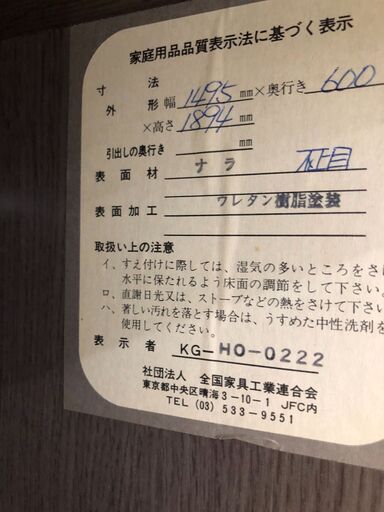 家庭用品品質表示法に基づく表示
寸法
外形 幅 1495 mm ×奥行き 600
×高さ 1894 mm
引出しの奥行き mm
表面材 ナラ 柾目
表面加工 ウレタン樹脂塗装
取扱い上の注意
イ、すえ付けに際しては、湿気の多いところをさ
水平に保たれるよう床面の調節をして下さい。
ロ、直謝日光又は、ストーブなどの熱をさけて下さい
ハ、著しい汚れを落とす場合は、うすめた中性洗剤を
使用してください。
表示者 KG-HO-0222
社団法人 全国家具工業連合会
東京都中央区晴海3-10-1 JFC内
TEL (03) 533-9551